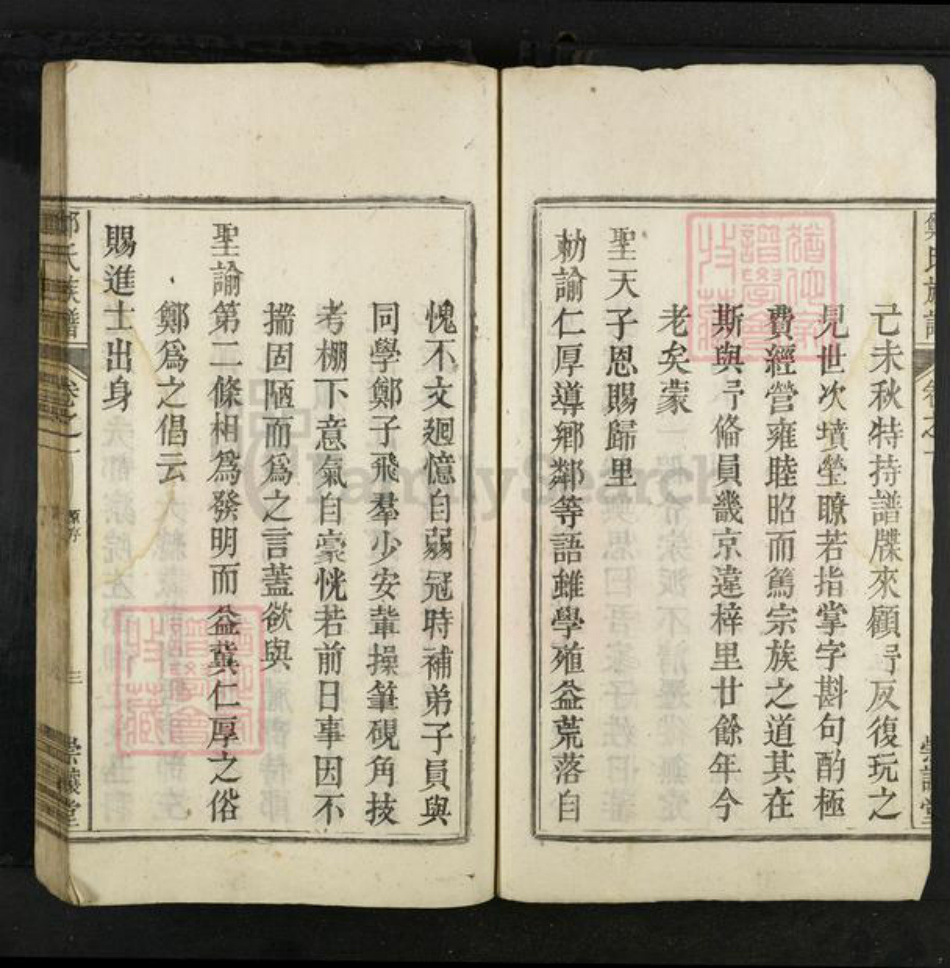 己未秋特持譜牒來顧予反復玩之
見世次墳塋瞭若指掌字斟句酌極
費經營雍睦昭而篤宗族之道其在
斯與予偹員畿京違梓里廿餘年今
老矣蒙
聖天子恩賜歸里
勅諭仁厚導鄉鄰等語雖學殖益荒落自
愧不文廻憶自弱冠時補弟子員與
同學鄭子飛羣少安軰操筆硯角技
考棚下意氣自豪恍若前日事因不
揣固陋而爲之言蓋欲與
聖諭第二條相爲發明而益冀仁厚之俗
鄭爲之倡云
賜進士出身
鄭氏族譜
卷之一
原序
三
崇讓堂
FamilySearch